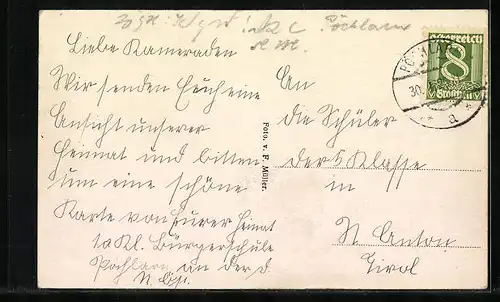 Pöchlarn
Liebe Kameraden
Wir senden Euch eine
Ansicht unserer
Heimat und bitten
um eine schöne
Karte von Eurer Heimat
1a Kl. Bürgerschule
Pöchlarn an der D.
N. Öst.
Foto. v. F. Müller.
Österreich
8
Groschen
PÖCHLA
30.
a
An
die Schüler
der 5 Klasse
in
St Anton
Tirol